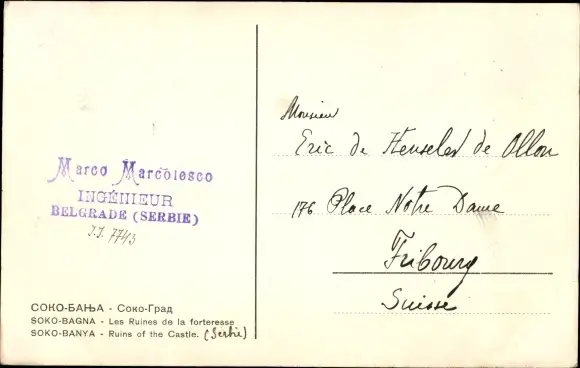 Marco Marcolesco
INGÉNIEUR
BELGRADE (SERBIE)
J.J. 7743
СОКО-БАЊА - Соко-Град
SOKO-BAGNA - Les Ruines de la forteresse
SOKO-BANYA - Ruins of the Castle. (Serbie)
Monsieur
Eric de Henseler de Ollon
176 Place Notre Dame
Fribourg
Suisse